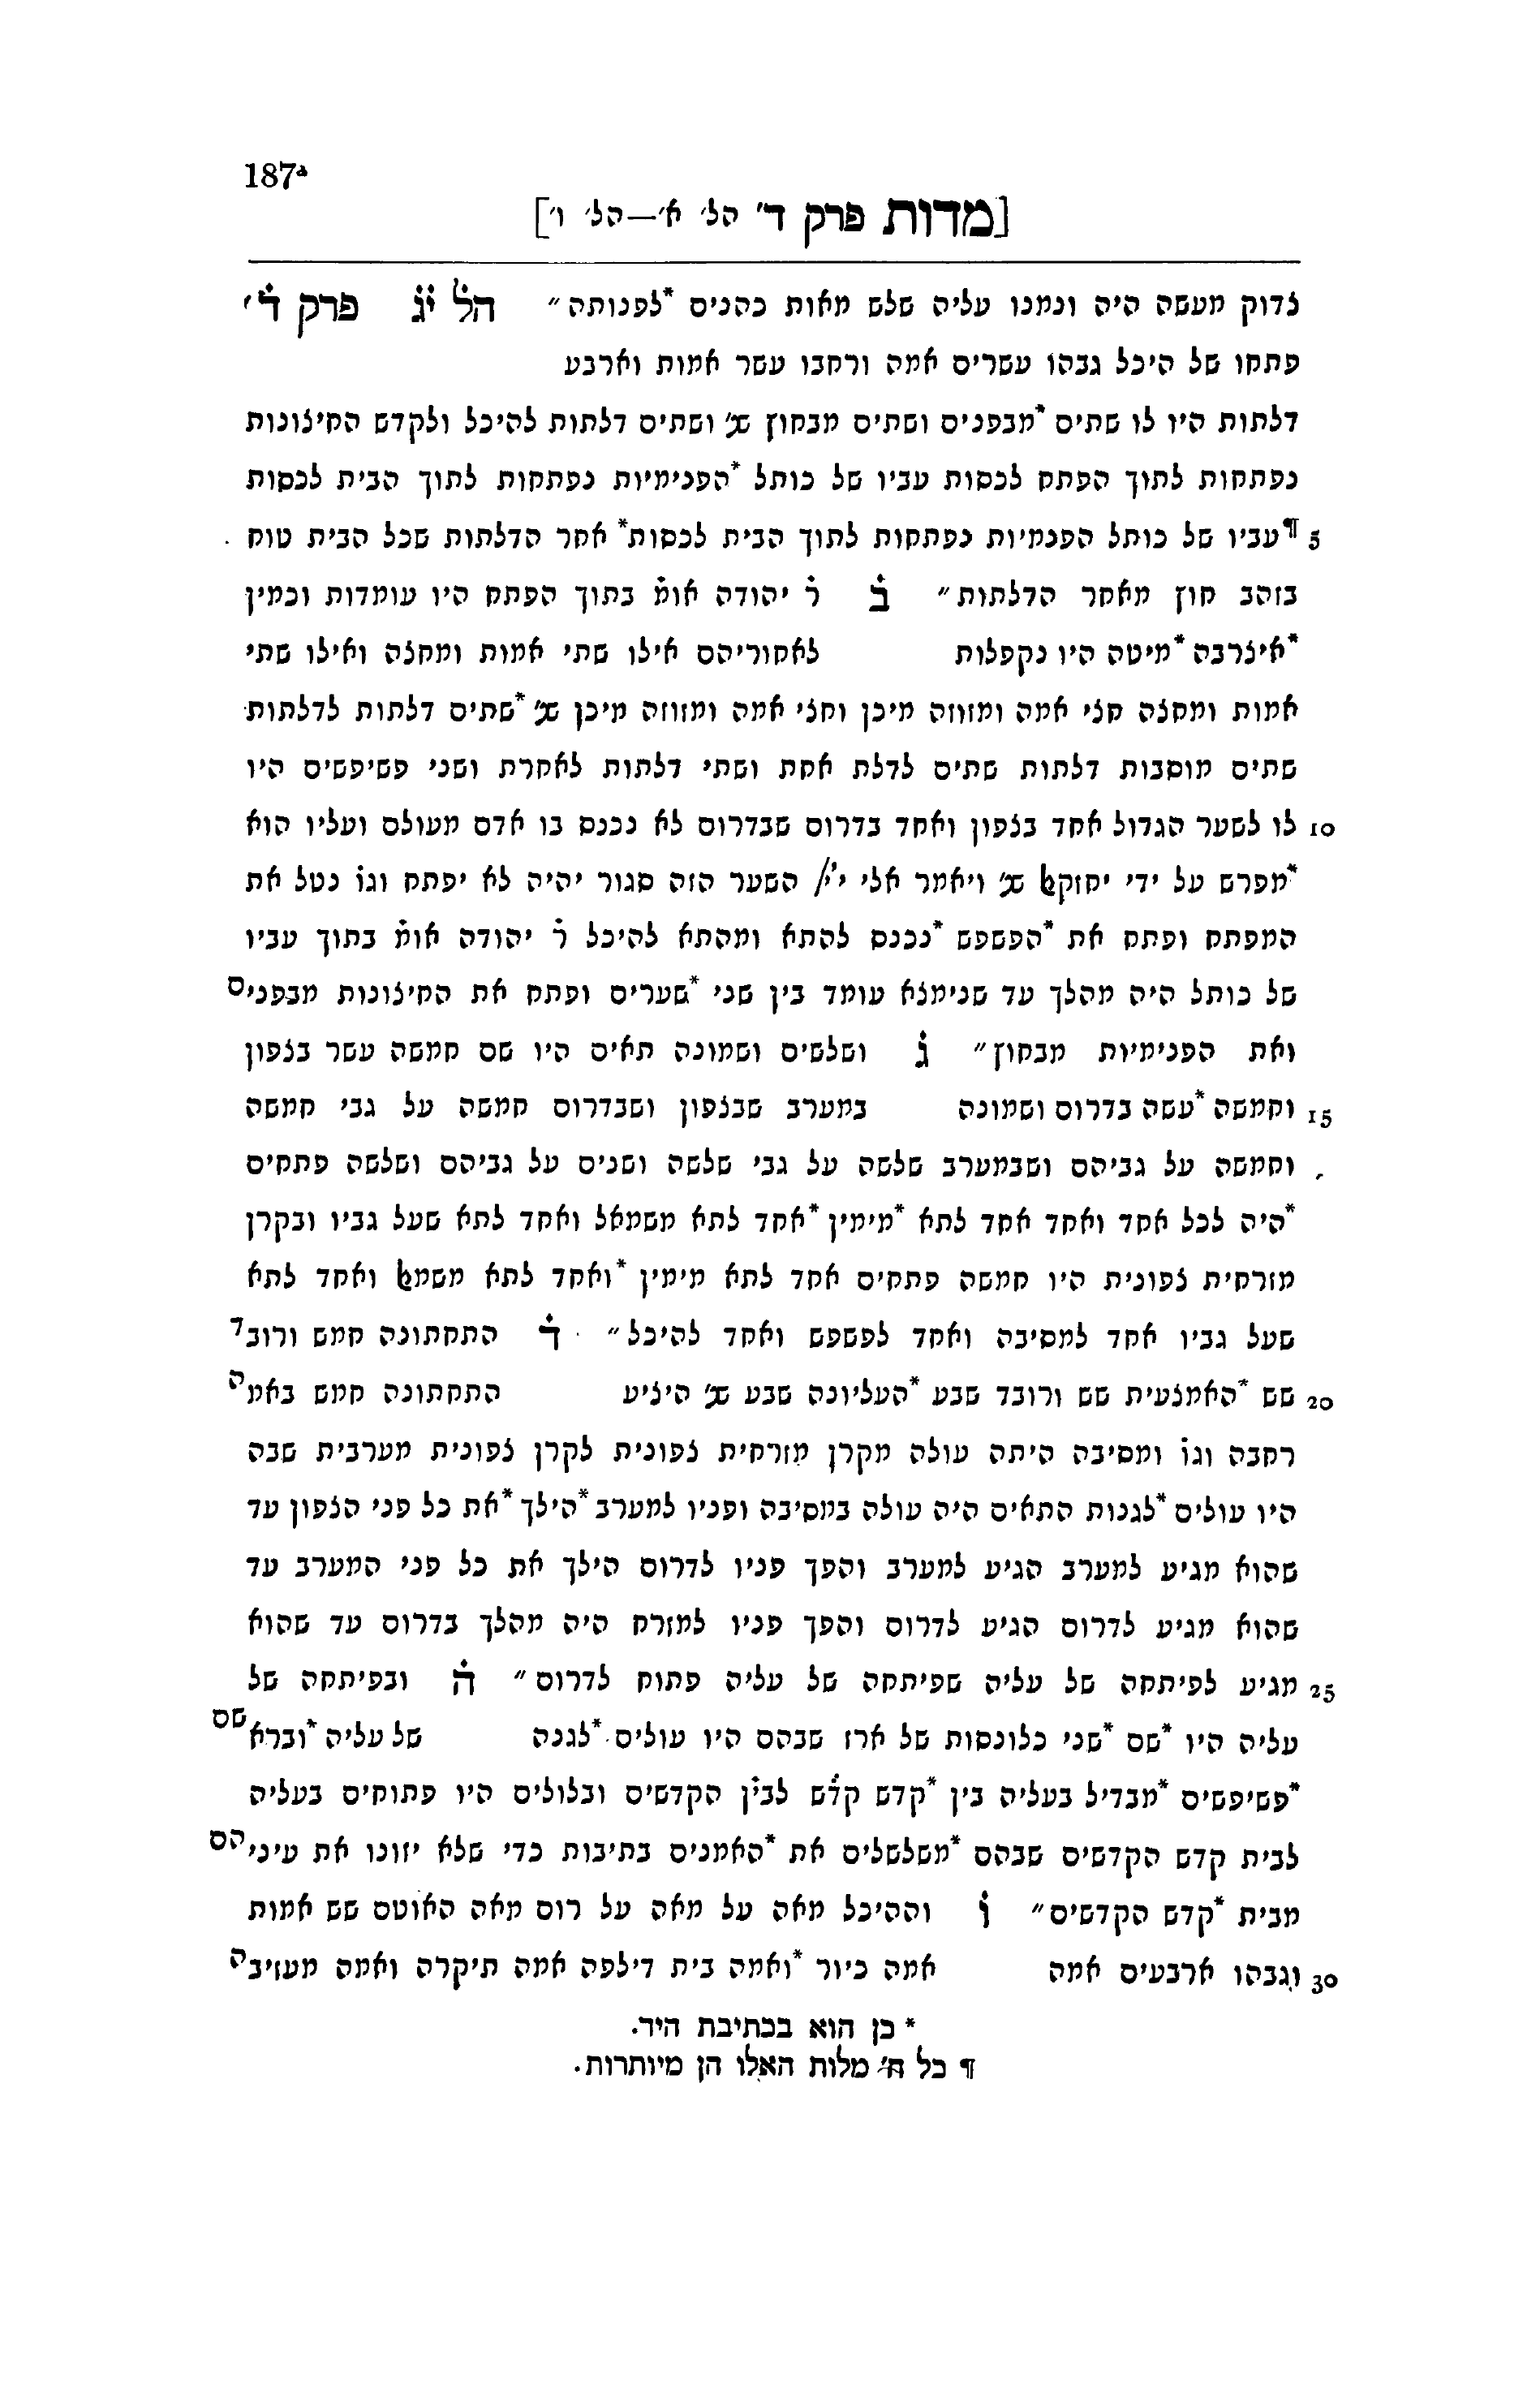 187ª
[מדות פרק ד׳ הל׳ א׳—הל׳ ו׳]
צדוק מעשה היה ונמנו עליה שלש מאות כהנים *לפנותה״ הל יג פרק ד׳
פתחו של היכל גבהו עשרים אמה ורחבו עשר אמות וארבע
דלתות היו לו שתים *מבפנים ושתים מבחוץ שנ׳ ושתים דלתות להיכל ולקדש החיצונות
נפתחות לתוך הפתח לכסות עביו של כותל *הפנימיות נפתחות לתוך הבית לכסות
5 ¶עביו של כותל הפנמיות נפתחות לתוך הבית לכסות* אחר הדלתות שכל הבית טוח
בזהב חוץ מאחר הדלתות״ ב ר יהודה אומ בתוך הפתח היו עומדות וכמין
*איצרבה *מיטה היו נקפלות לאחוריהם אילו שתי אמות ומחצה ואילו שתי
אמות ומחצה חצי אמה ומזוזה מיכן וחצי אמה ומזוזה מיכן שנ׳ *שתים דלתות לדלתות
שתים מוסבות דלתות שתים לדלת אחת ושתי דלתות לאחרת ושני פשיפשים היו
10 לו לשער הגדול אחד בצפון ואחד בדרום שבדרום לא נכנס בו אדם מעולם ועליו הוא
*מפרש על ידי יחזקאל שנ׳ ויאמר אלי יי׳ השער הזה סגור יהיה לא יפתח וגו נטל את
המפתח ופתח את *הפשפש *נכנס להתא ומהתא להיכל ר יהודה אומ בתוך עביו
של כותל היה מהלך עד שנימצא עומד בין שני *שערים ופתח את החיצונות מבפנים
ואת הפנימיות מבחוץ״ ג ושלשים ושמונה תאים היו שם חמשה עשר בצפון
15 וחמשה *עשה בדרום ושמונה במערב שבצפון ושבדרום חמשה על גבי חמשה
וחמשה על גביהם ושבמערב שלשה על גבי שלשה ושנים על גביהם ושלשה פתחים
*היה לכל אחד ואחד אחד לתא *מימין *אחד לתא משמאל ואחד לתא שעל גביו ובקרן
מזרחית צפונית היו חמשה פתחים אחד לתא מימין *ואחד לתא משמאל ואחד לתא
שעל גביו אחד למסיבה ואחד לפשפש ואחד להיכל״ ד התחתונה חמש ורובד
20 שש *האמצעית שש ורובד שבע *העליונה שבע שנ׳ היציע התחתונה חמש באמה
רחבה וגו ומסיבה היתה עולה מקרן מזרחית צפונית לקרן צפונית מערבית שבה
היו עולים *לגנות התאים היה עולה במסיבה ופניו למערב *הילך *את כל פני הצפון עד
שהוא מגיע למערב הגיע למערב והפך פניו לדרום הילך את כל פני המערב עד
שהוא מגיע לדרום הגיע לדרום והפך פניו למזרח היה מהלך בדרום עד שהוא
25 מגיע לפיתחה של עליה שפיתחה של עליה פתוח לדרום״ ה ובפיתחה של
עליה היו *שם *שני כלונסות של ארז שבהם היו עולים *לגנה של עליה *וברא שם
*פשיפשים *מבדיל בעליה בין *קדש קדש לבין הקדשים ובלולים היו פתוחים בעליה
לבית קדש הקדשים שבהם *משלשלים את *האמנים בתיבות כדי שלא יזונו את עיניהם
מבית *קדש הקדשים״ ו וההיכל מאה על מאה על רום מאה האוטם שש אמות
30 וגבהו ארבעים אמה אמה כיור *ואמה בית דילפה אמה תיקרה ואמה מעזיבה
* כן הוא בכתיבת היד.
¶ כל ח׳ מלות האלו הן מיותרות.